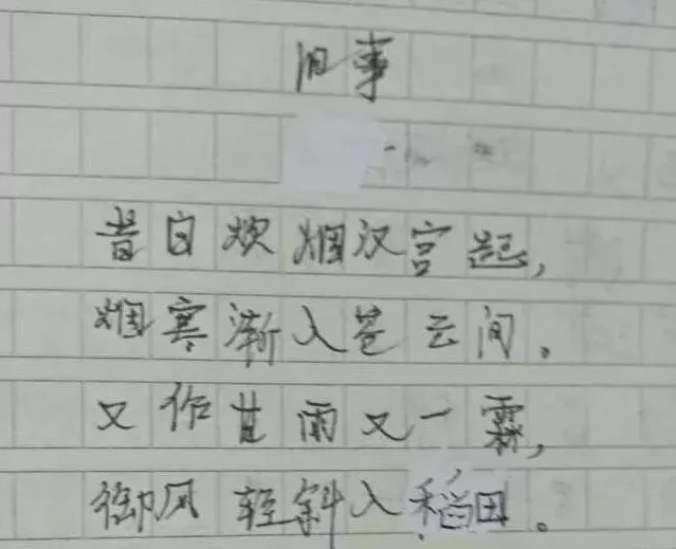 旧事
昔日炊烟汉宫起，
烟寒渐入苍云间。
又作甘雨又一霖，
御风轻斜入稻田。